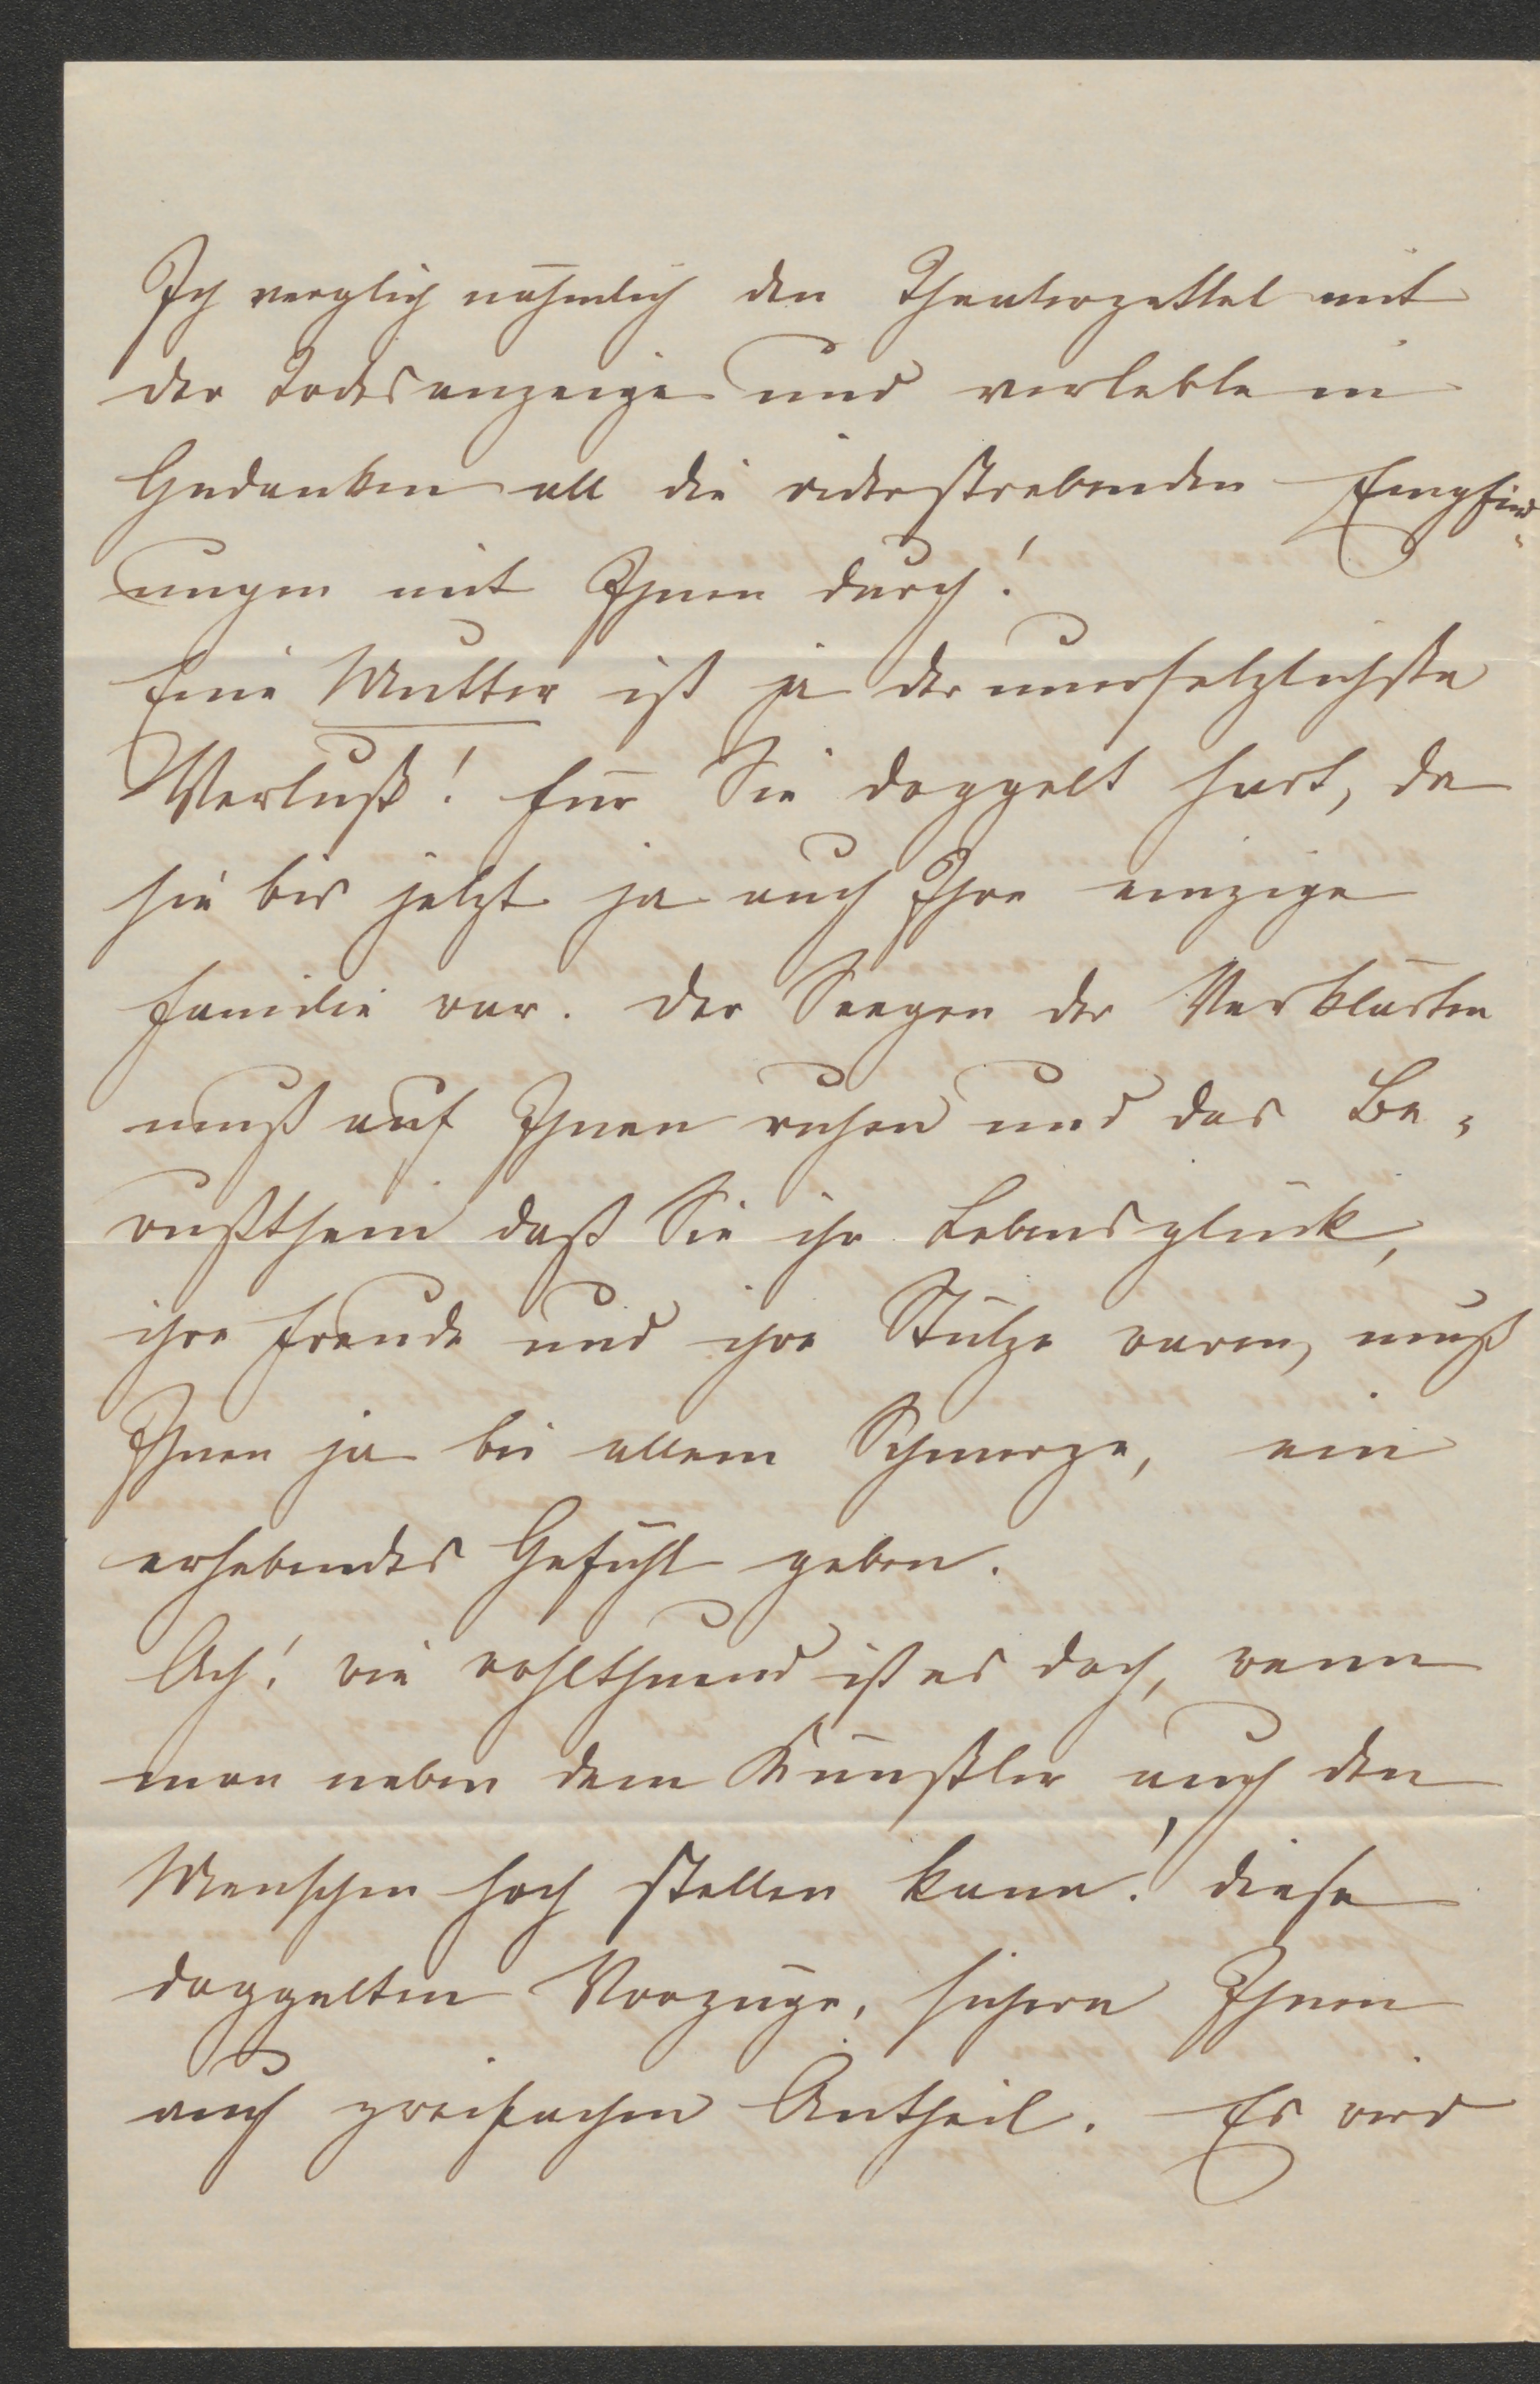 Ich verglich nähmlich den Theaterzettel mit
der Todesanzeige und verlebte in
Gedanken all die widerstrebenden Empfind-
ungen mit Ihnen durch!
Eine Mutter ist ja der unersetzlichste
Verlust! für Sie doppelt hart, da
sie bis jetzt ja auch Ihre einzige
Familie war. Der Seegen der Verklärten
muß auf Ihnen ruhen und das Be-
wußtsein daß Sie ihr Lebensglück,
ihre Freude und ihre Stütze waren, muß
Ihnen ja bei allem Schmerze, ein
erhebendes Gefühl geben.
Ach! wie wohlthuend ist es doch, wenn
man neben dem Künstler auch den
Menschen hoch stellen kann! diese
doppelten Vorzüge, sichern Ihnen
auch zweifachen Antheil. Es wird